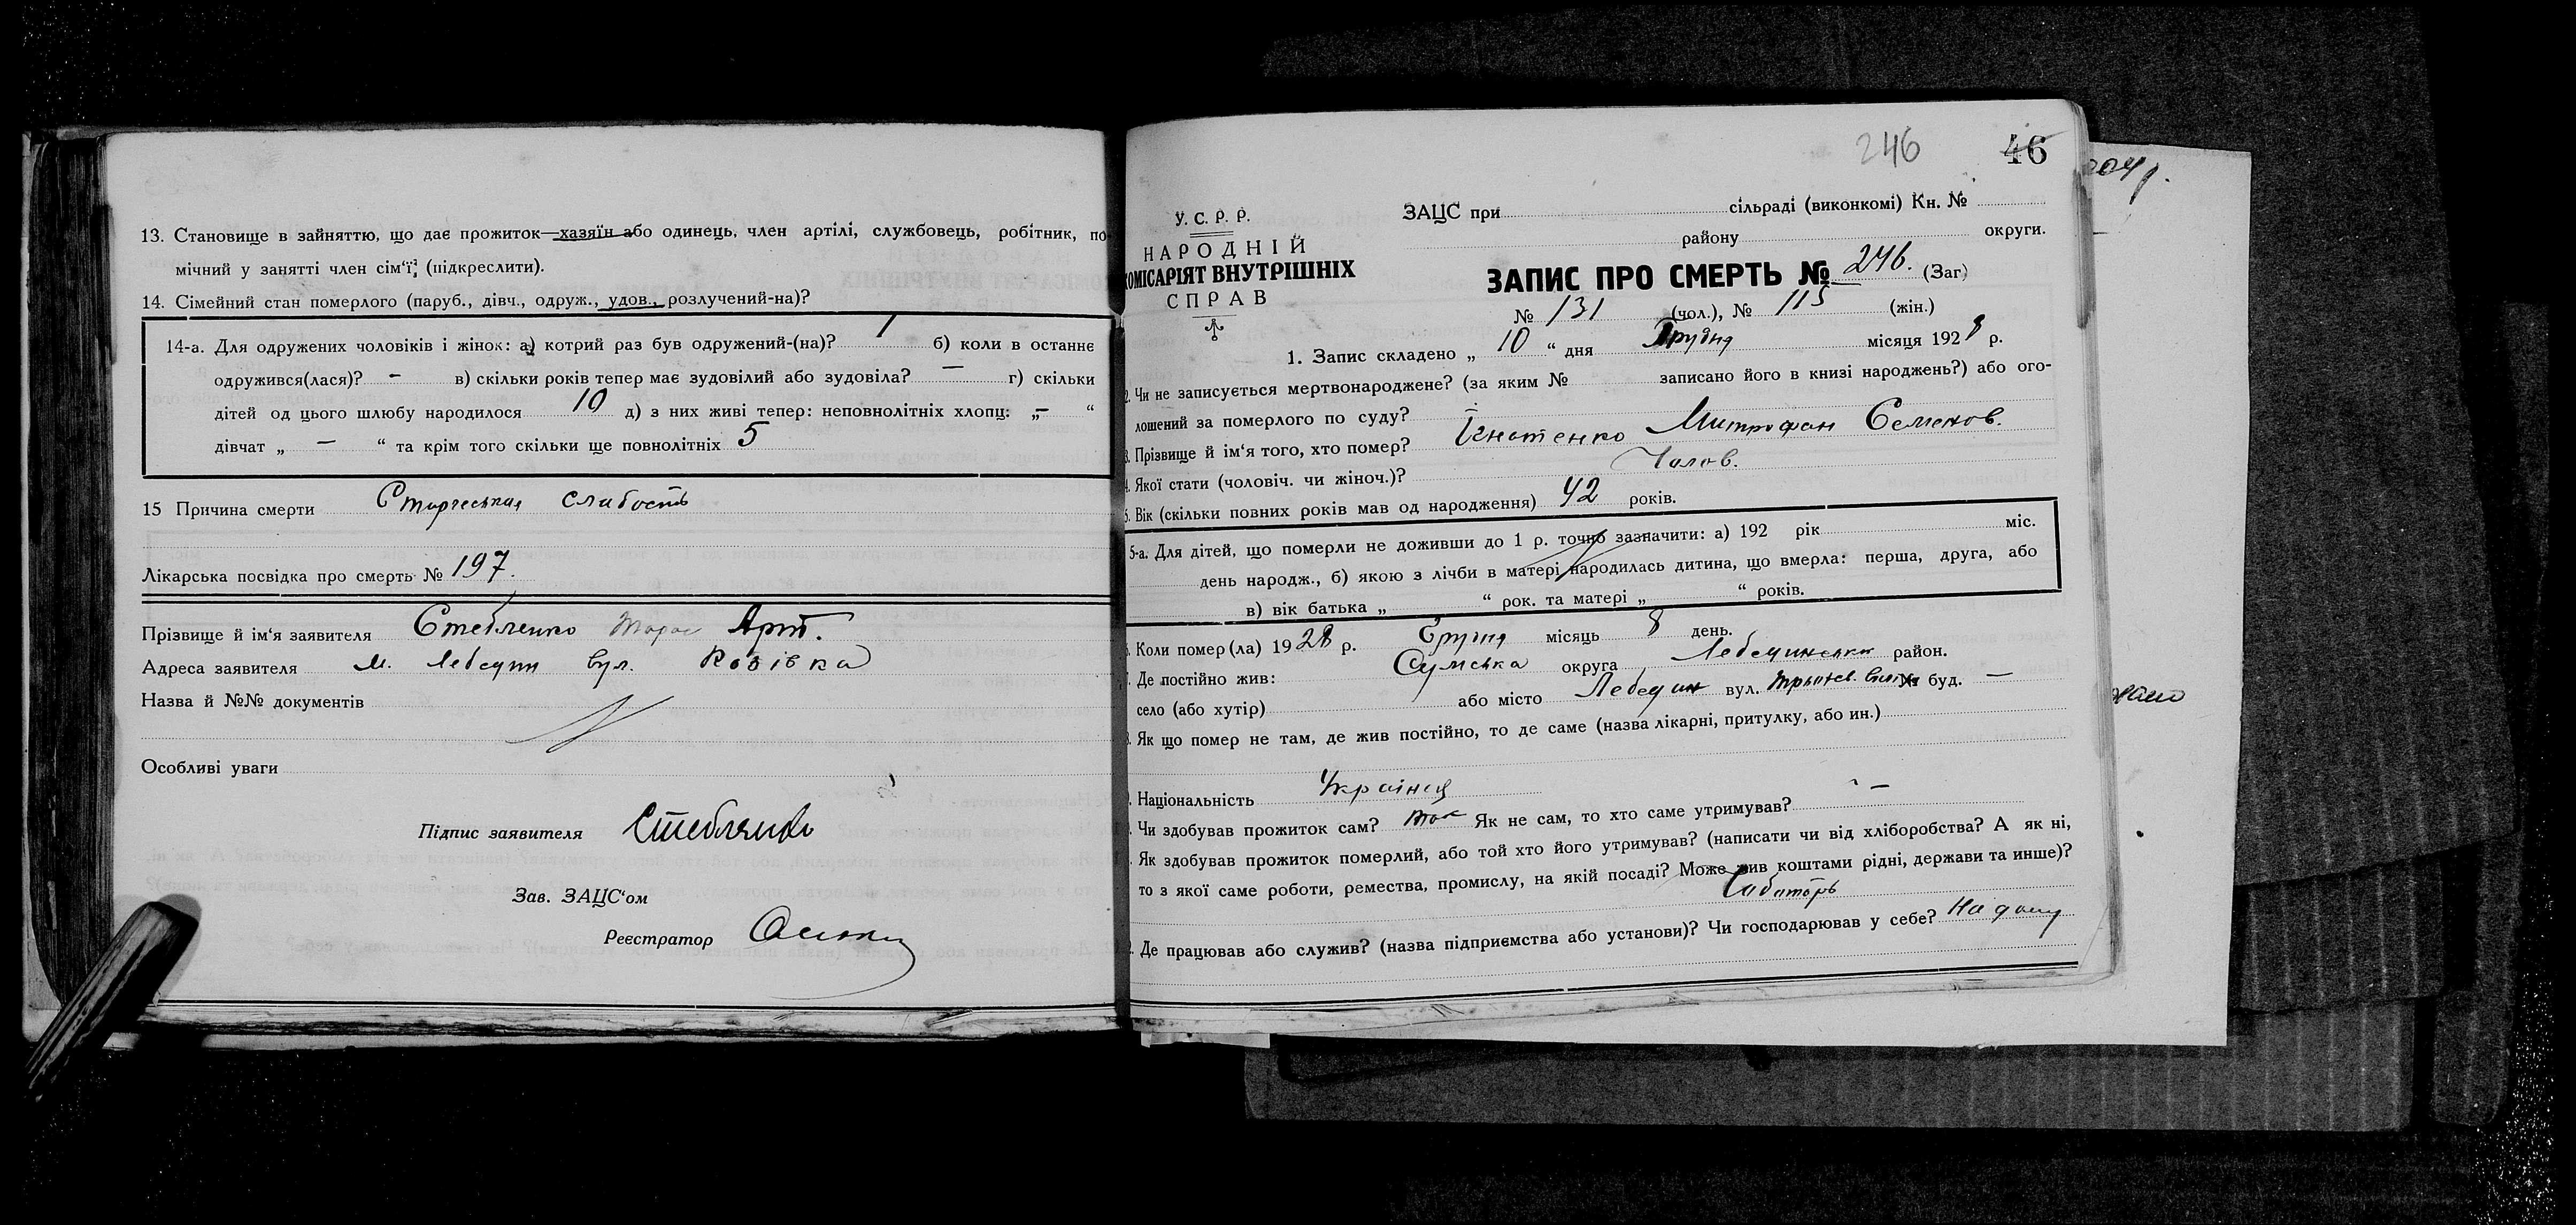 13. Становище в зайняттю, що дає прожиток—хазяїн або одинець, член артілі, службовець, робітник, по
мічний у занятті член сім'ї; (підкреслити).
14. Сімейний стан померлого (паруб., дівч., одруж., удов., розлучений-на)?
14-а. Для одружених чоловіків і жінок: а) котрий раз був одружений-(на)? 1 б) коли в останнє
одружився(лася)? — в) скільки років тепер має зудовілий або зудовіла? — г) скільки
дітей од цього шлюбу народилося 10 д) з них живі тепер: неповнолітніх хлопц: „—“
дівчат „ — “ та крім того скільки ще повнолітніх 5
15 Причина смерти Старческая слабость
Лікарська посвідка про смерть № 197.
Прізвище й ім'я заявителя Стебленко Тарас Арт.
Адреса заявителя м. Лебедин вул. Кобівка
Назва й №№ документів
Особливі уваги
Підпис заявителя Стебленко
Зав. ЗАЦС'ом
Реєстратор
246 46
У. С. Р. Р.
НАРОДНІЙ
КОМІСАРІЯТ ВНУТРІШНІХ
СПРАВ
ЗАЦС при сільраді (виконкомі) Кн. №
району округи.
ЗАПИС ПРО СМЕРТЬ № 246. (Заг)
№ 131 (чол.), № 115 (жін.)
1. Запис складено „ 10 “ дня Грудня місяця 1928 р.
2. Чи не записується мертвонароджене? (за яким № записано його в книзі народжень?) або ого-
лошений за померлого по суду? —
3. Прізвище й ім'я того, хто помер? Ігнатенко Митрофан Семенов.
4. Якої стати (чоловіч. чи жіноч.)? Чолов.
5. Вік (скільки повних років мав од народження) 42 років.
5-а. Для дітей, що померли не доживши до 1 р. точно зазначити: а) 192 рік міс.
день народж., б) якою з лічби в матері народилась дитина, що вмерла: перша, друга, або
в) вік батька „ “ рок. та матері „ “ років.
6. Коли помер(ла) 1928 р. Грудня місяць 8 день.
7. Де постійно жив: Сумська округа Лебединський район.
село (або хутір) або місто Лебедин вул. № буд. —
8. Як що помер не там, де жив постійно, то де саме (назва лікарні, притулку, або ин.)
Національність Українец
Чи здобував прожиток сам? так Як не сам, то хто саме утримував? —
Як здобував прожиток померлий, або той хто його утримував? (написати чи від хліборобства? А як ні,
то з якої саме роботи, ремества, промислу, на якій посаді? Може жив коштами рідні, держави та инше)?
Де працював або служив? (назва підприємства або установи)? Чи господарював у себе? На дому